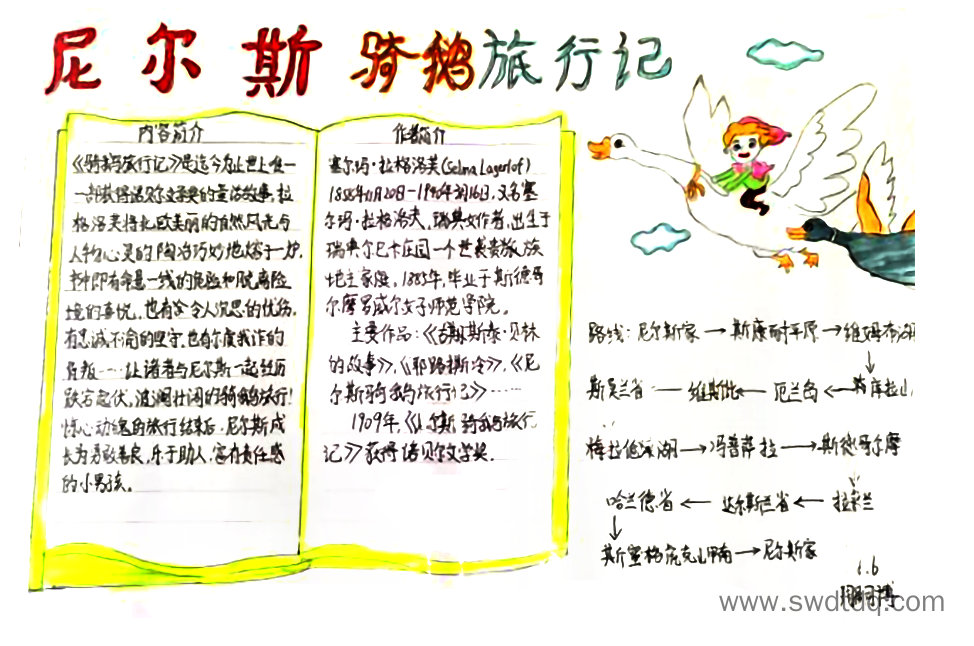 尼尔斯骑鹅旅行记
内容简介
《骑鹅旅行记》是迄今为止世上唯一
一部获得诺贝尔文学奖的童话故事,拉
格洛芙将北欧美丽的自然风光与
人物心灵的陶冶巧妙地熔于一炉,
命悬一线的危险和脱离险
境的喜悦,也有令人沉思的忧伤,
有忠诚不渝的坚守,也有尔虞我诈的
背叛……让读者与尼尔斯一起经历
跌宕起伏,波澜壮阔的骑鹅旅行!
惊心动魄的旅行结束后,尼尔斯成
长为勇敢善良,乐于助人,富有责任感
的小男孩。
作者简介
塞尔玛·拉格洛芙(Selma Lagerlof)
1858年11月20日-1940年3月16日,又名塞
尔玛·拉格洛夫,瑞典女作家,出生于
瑞典尔巴卡庄园一个世袭贵族
地主家庭。1885年,毕业于斯德哥
尔摩罗威尔女子师范学院。
主要作品:《古斯泰·贝林
的故事》,《耶路撒冷》,《尼
尔斯骑鹅旅行记》……
1909年,《尼尔斯骑鹅旅行
记》获得诺贝尔文学奖。
路线:尼尔斯家→斯康耐平原→维姆布湖
↓
斯莫兰省←维斯比←厄兰岛←库拉山
↓
梅拉伦湖→冯菩萨拉→斯德哥尔摩
↓
哈兰德省←达尔斯兰省←拉普兰
↓
斯密格虎克山甲角→尼尔斯家
6.6
www.swdtdq.com